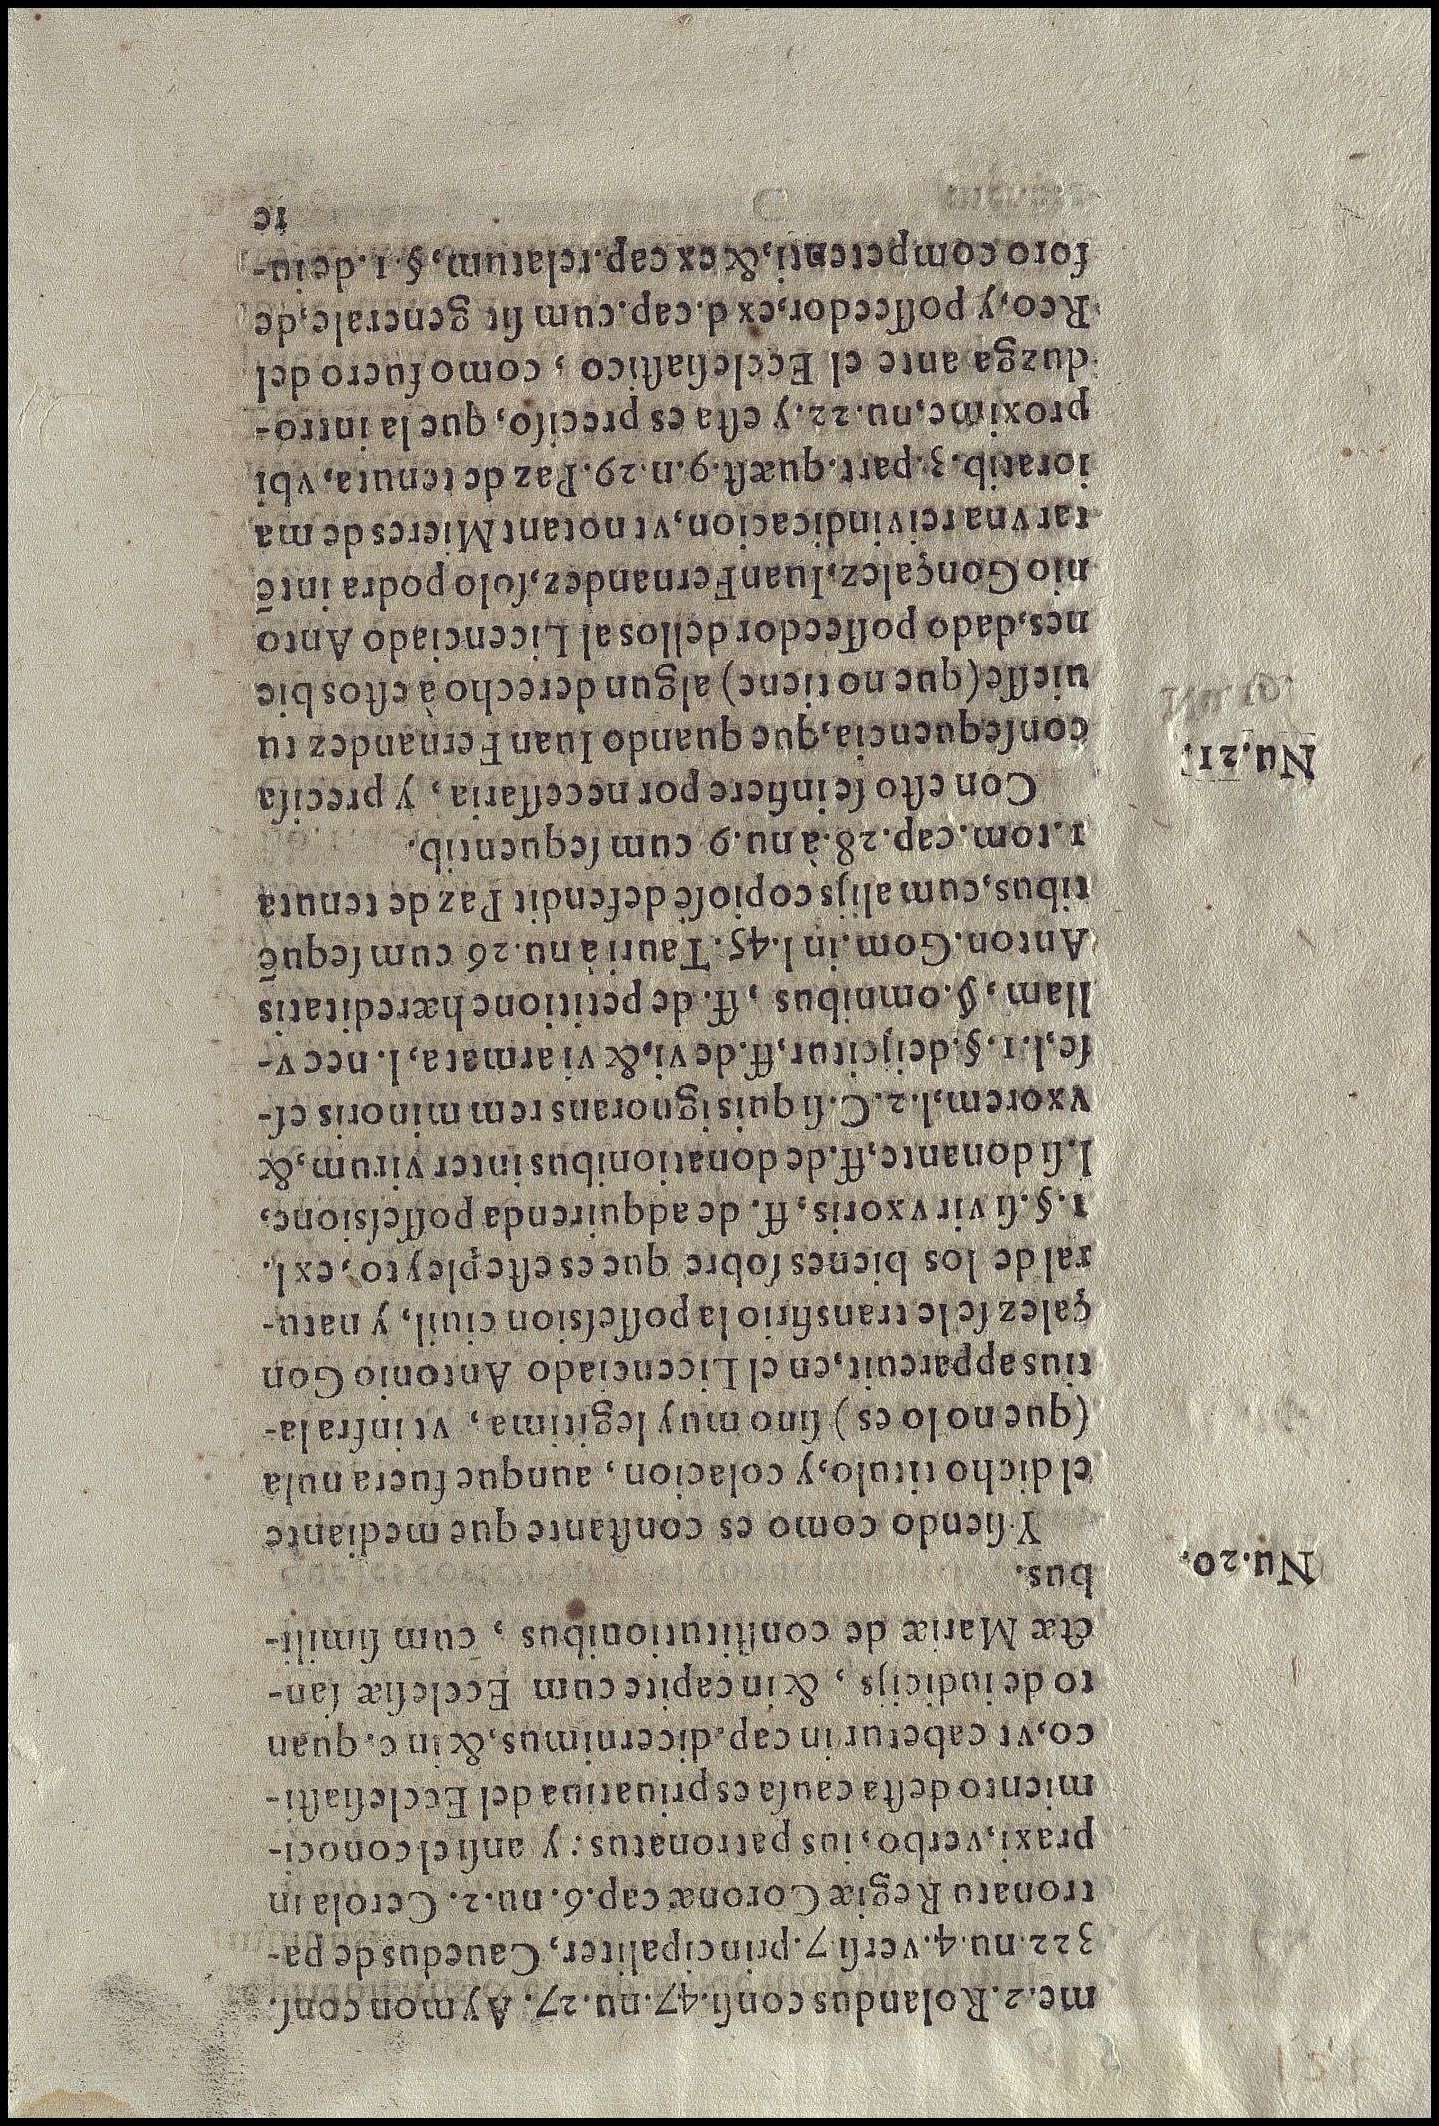 me.2.Rolandus consi.47.nu.27. Aymon cons.
322.nu.4.versi 7.principaliter, Cauedus de pa-
tronatu Regiæ Coronæ cap.6.nu.2. Cerola in
praxi, verbo, ius patronatus: y ansi el conoci-
miento desta causa es priuatiua del Ecclesiasti-
co, vt cabetur in cap. dicernimus, & in c. quan
to de iudicijs, & in capite cum Ecclesiæ san-
ctæ Mariæ de constitutionibus, cum simili-
bus.
Nu.20.
Y siendo como es constante que mediante
el dicho titulo, y colacion, aunque fuera nula
(que no lo es) sino muy legitima, vt infra la-
tius apparcuit, en el Licenciado Antonio Gon
çalez se le transfirio la possession ciuil, y natu-
ral de los bienes sobre que es este pleyto, ex l.
1.§. si vir vxoris, ff. de adquirenda possessione,
l. si donante, ff. de donationibus inter virum, &
vxorem, l.2. C. si quis ignorans rem minoris es-
se, l.1.§. deijcitur, ff. de vi, & vi armata, l. nec v-
llam, §. omnibus, ff. de petitione hæreditatis
Anton. Gom. in l.45. Tauri à nu.26 cum sequē
tibus, cum alijs copiosè defendit Paz de tenuta
1.tom.cap.28.à nu.9 cum sequentib.
Con esto se infiere por necessaria, y precisa
Nu.21.
consequencia, que quando Iuan Fernandez tu
uiesse (que no tiene) algun derecho à estos bie
nes, dado posseedor dellos al Licenciado Anto
nio Gonçalez, Iuan Fernandez, solo podra intē
tar vna reivindicacion, vt notant Mieres de ma
ioratib.3.part.quæst.9.n.29. Paz de tenuta, vbi
proxime, nu.22. y esta es preciso, que la intro-
duzga ante el Ecclesiastico, como fuero del
Reo, y posseedor, ex d.cap. cum sit generale, de
foro competenti, & ex cap. relatum, §.1. de iu-
re